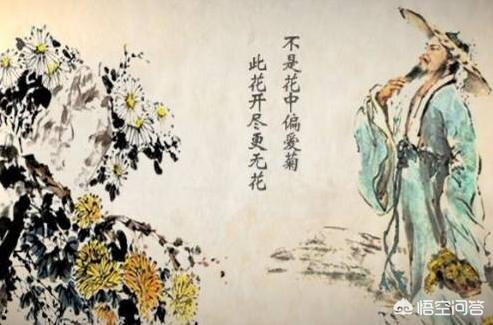 不是花中偏爱菊
此花开尽更无花
悟空问答